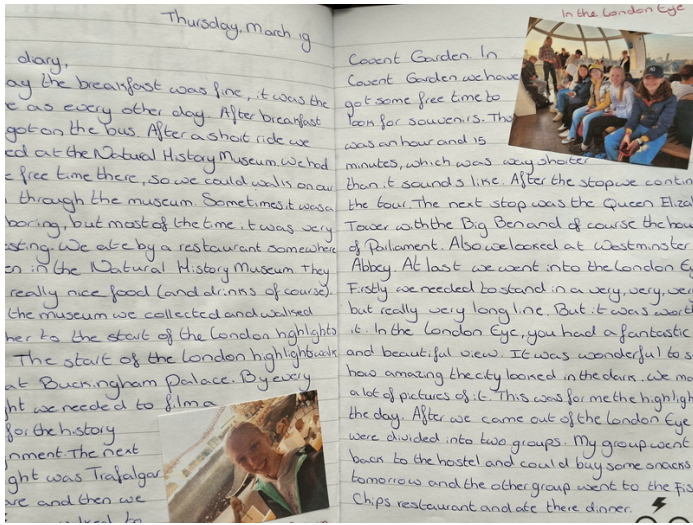 Thursday, March 19
diary,
ay the breakfast was fine, it was the
e as every other day. After breakfast
got on the bus. After a short ride we
ed at the Natural History Museum. We had
e free time there, so we could walk on our
through the museum. Sometimes it was a
boring, but most of the time it was very
sting. We ate by a restaurant somewhere
en in the Natural History Museum they
really nice food (and drinks of course).
the museum we collected and walked
her to the start of the London highlights
The start of the London highlightwalk
at Buckingham Palace. By every
ht we needed to film a
for the history
nment. The next
ght was Trafalgar
are and then we
In the London Eye
Covent Garden. In
Covent Garden we have
got some free time to
look for souvenirs. This
was an hour and 15
minutes, which was way shorter
than it sounds like. After the stop we contin
the tour. The next stop was the Queen Elizab
Tower with the Big Ben and of course the hou
of Parliament. Also we looked at Westminster
Abbey. At last we went into the London E
Firstly we needed to stand in a very, very, ver
but really very long line. But it was wort
it. In the London Eye, you had a fantastic
and beautiful view. It was wonderful to s
how amazing the city looked in the dark. We ma
a lot of pictures of it. This was for me the highligh
the day. After we came out of the London Eye
were divided into two groups. My group went
back to the hostel and could buy some snacks
tomorrow and the other group went to the Fis
Chips restaurant and ate there dinner.